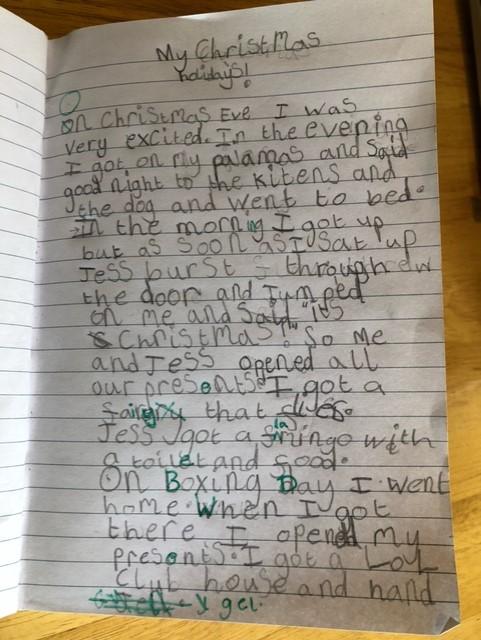 My Christmas
holidays!
On Christmas Eve I was
very excited. In the evening
I got on my pajamas and said
good night to the kitens and
the dog and went to bed.
In the morning I got up
but as soon as I sat up
Jess burst through
the door and Jumped
on me and said "it's
Christmas! So me
and Jess opened all
our presents. I got a
that
Jess got a with
a toilet and food.
On Boxing Day I went
home. When I got
there I opened my
presents. I got a LoL
Club house and hand
gel.